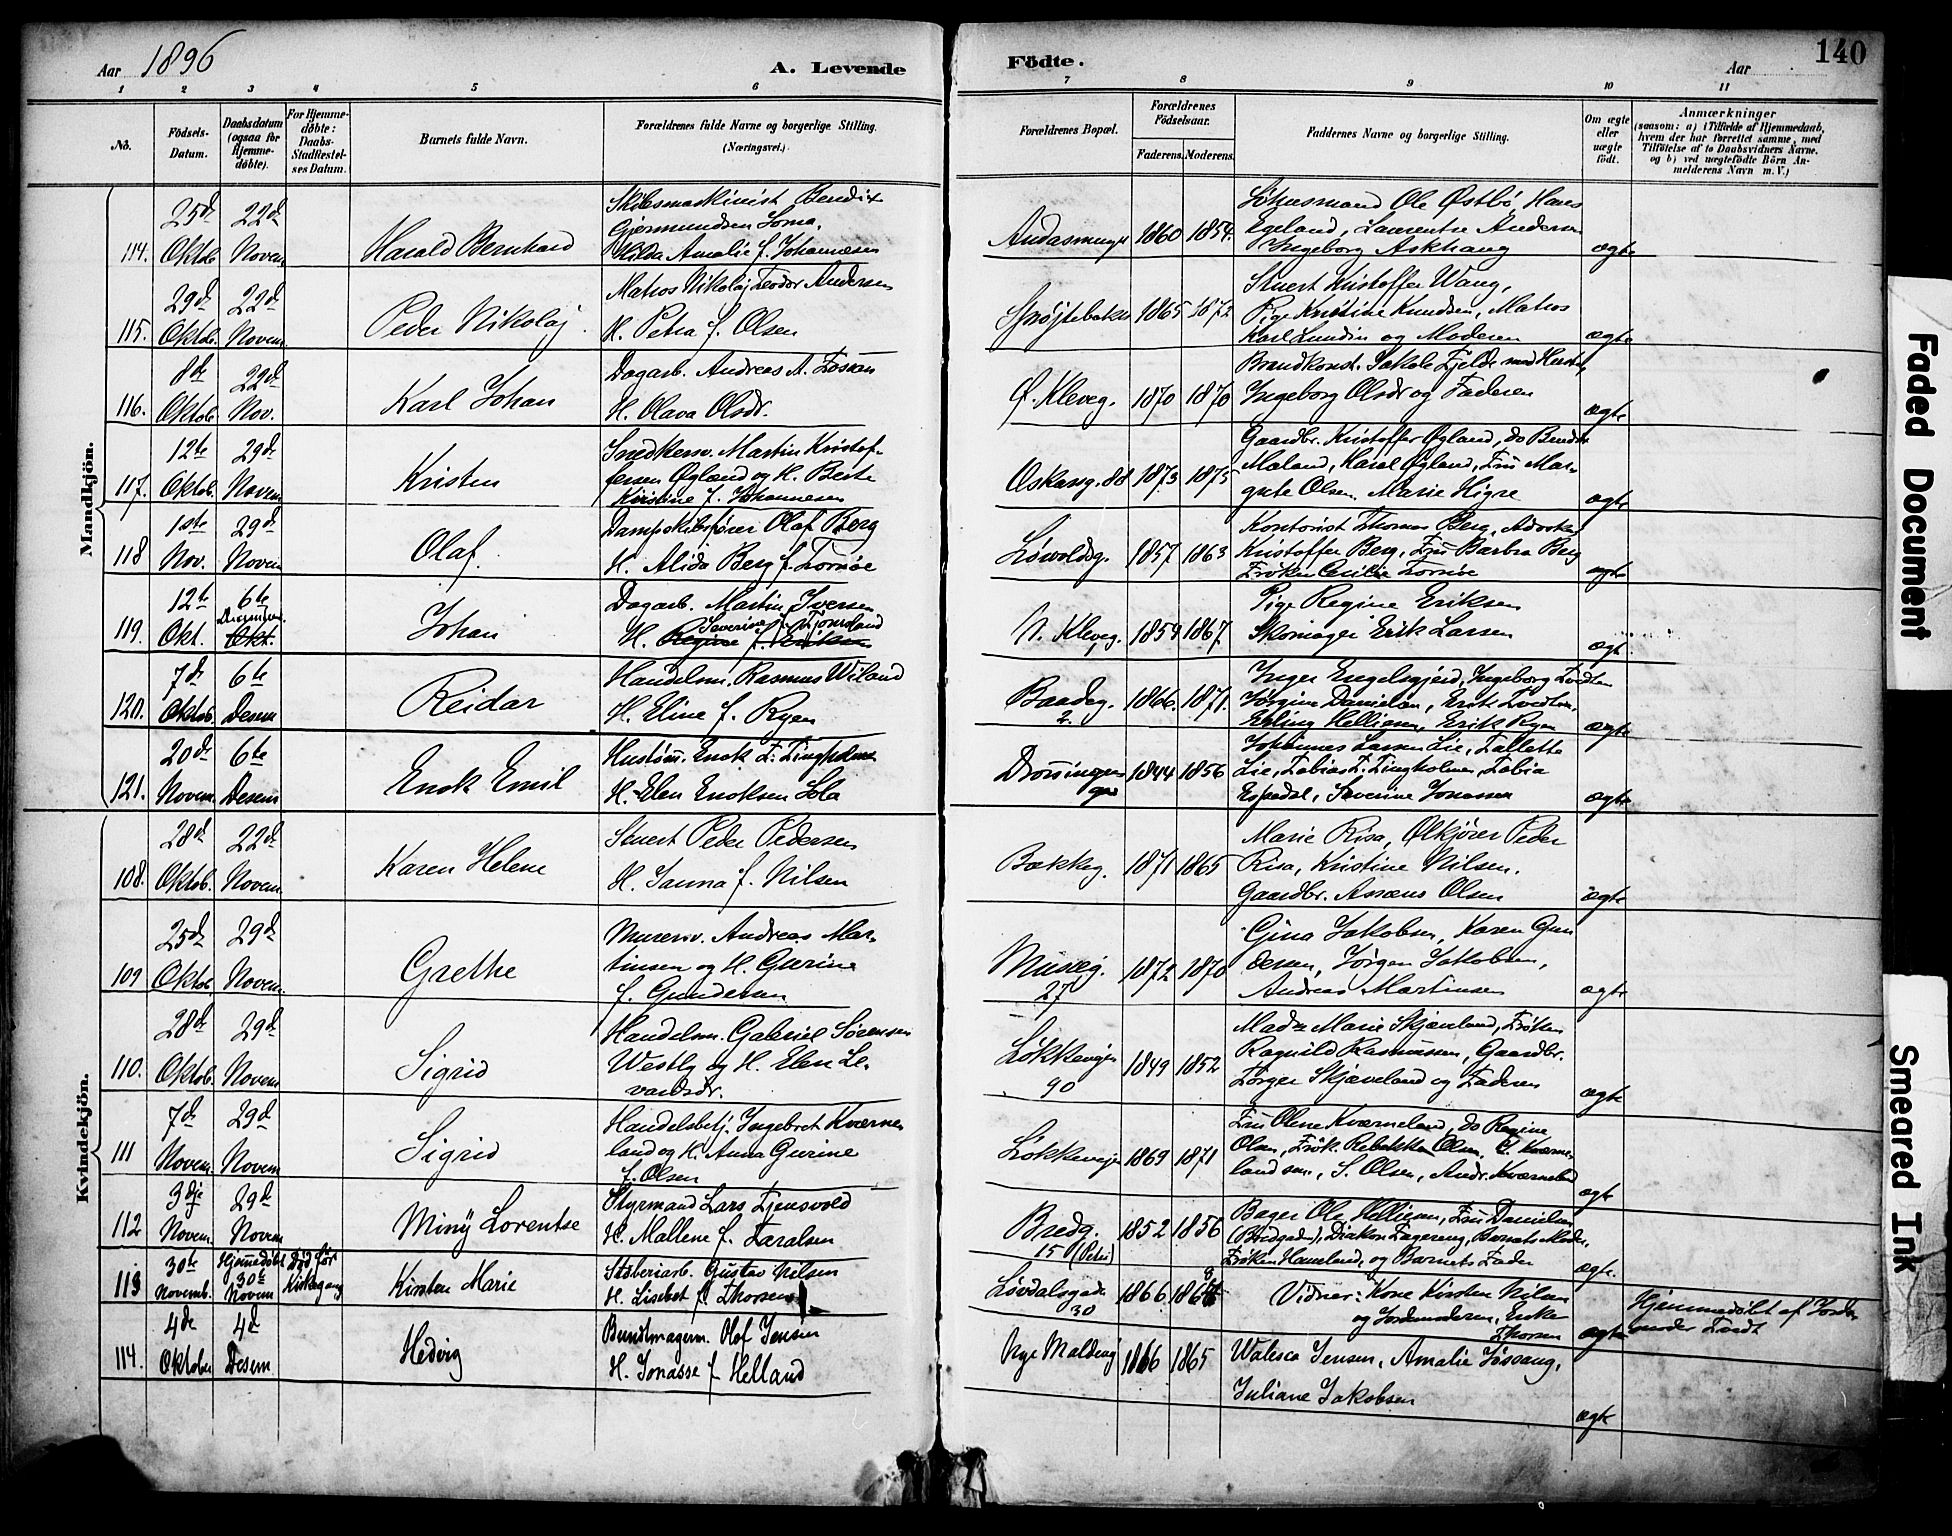 Aar 1896
A. Levende
Fødte.
Aar
140
1 2 3 4 5 6 7 8 9 10 11
No.
Fødsels-
Datum.
Daabsdatum
(ogsaa for
Hjemme-
døbte).
For Hjemme-
døbte:
Daabs-
Stadfæstel-
ses Datum.
Barnets fulde Navn.
Forældrenes fulde Navne og borgerlige Stilling.
(Næringsvei.)
Forældrenes Bopæl.
Forældrenes
Fødselsaar.
Faderens.
Moderens.
Faddernes Navne og borgerlige Stilling.
Om ægte
eller
uægte
født.
Anmærkninger
(saasom: a) i Tilfælde af Hjemmedaab,
hvem der har forrettet samme, med
Tilføielse af to Daabsvidners Navne.
og b) ved uægtefødte Børn An-
melderens Navn m. V.)
Mandkjön.
114. 25de Oktob. 22de Novem.
Harald Bernhard
Skibsmaskinist Bendix
Gjermundsen Soma,
Hilda Amalie f. Johannesen
1860 1854.
Ole Østbø, Hans
Egeland, Laurentse Andersen
Ingeborg Askhaug
ægte
115. 29de Oktob. 22de Novem.
Peder Nikolaj
Matros Nikolaj Teodor Andersen
H. Petra f. Olsen
Sprøjtebakk 1865 1872
Stuert Kristoffer Wang,
Pige Kristine Knudsen, Matros
Karl Lundin og Moderen
ægte
116. 8de Oktob. 22de Nov.
Karl Johan
Dagarb. Andreas A.
H. Olava Olsdr.
Ø. Kleveg. 1870 1870
Brandkonst. Jakob Fjelde med Hustru,
Ingeborg Olsdr og Faderen
ægte
117. 12te Oktob. 29de Novem
Kristen
Snedkersv. Martin Kristof-
fersen Øgland og H. Berte
Kristine f. Johannesen
Oskarsg. 88 1873 1875
Gaardbr. Kristoffer Øgland, do
Maland, Karal Øgland, Fru Mar-
grete Olsen, Marie Higre
ægte
118 1ste Nov. 29de Novem
Olaf.
Dampskibsfører Olaf Berg
H. Alida Berg f. Tornøe
Løvoldsg. 1857 1863
Kontorist Thomas Berg,
Kristoffer Berg, Fru Barbra Berg
Frøken Cecilie Tornøe
ægte
119. 12te Okt. 6te Okt. Desember
Johan
Dagarb. Martin Iversen
H. Regine f. Eriksen Severine Tjomsland
V. Kleveg. 1859 1867
Pige Regine Eriksen
Skomager Erik Larsen
ægt.
120. 7de Oktob. 6te Desem
Reidar
Handelsm. Rasmus Wiland
H. Eline f. Ryen
Baadsg. 2. 1866. 1871.
Inger Engelsgjerd, Ingeborg Tvedten
Jørgine Danielsen, Erik Tvedten,
Erling Helliesen, Erik Ryen
ægte
121. 20de Novem. 6te Desem
Enok Emil
Enok T. Tingholm
H. Elen Enoksen Sola
Dronningens gd 1844 1856
Johannes Larsen Lie, Tallette
Lie, Tobias T. Tingholmen, Tobia
Espedal, Severine Jonassen
ægte
Kvindekjön.
108. 28de Oktob. 22de Novem.
Karen Helene
Stuert Peder Pedersen
H. Janna f. Nilsen
Bakkeg. 1871 1865
Marie Risa, Ølkjører Peder
Risa, Kristine Nilsen.
Gaardbr. Olsen
ægte
109 25de Oktob. 29de Novem.
Grethe
Murersv. Andreas Mar-
tinsen og H. Gurine
f. Gundersen
Musæg. 27 1872 1870
Gina Jakobsen, Karen Gun
dersen, Jørgen Jakobsen,
Andreas Martinsen
ægte
110. 28de Oktob. 29de Novem
Sigrid
Handelsm. Gabriel Sørensen
Westby og H. Elen Le-
vardsdr.
Løkkevejen 90 1849 1852
Mada Marie Skjæveland, Frøken
Ragnild Rasmussen, Gaardbr.
Torger Skjæveland og Faderen
ægte
111 7de Novem. 29de Novem
Sigrid
Handelsbetj. Ingebret Kværne
land og H. Anna Gurine
f. Olsen
Løkkeveje 1869 1871
Fru Olene Kværneland, do Regine
Olsen, Frøk. Rebekka Olsen, T. Kværne-
land sen., S. Olsen, Andr. Kværneland
ægte
112 3dje Novem. 29de Novem
Miny Lorentse
Styrmand Lars Tjensvold
H. Mallene f. Taralsen
Bredg. 15 (Petri) 1852 1856
Bager Ole Helliesen, Fru Danielsen
(Bredgaden), Diakon Fagereng, Barnets Moder,
Frøken Haueland, og Barnets Fader
ægte.
113 30te Novemb. Hjemmedøbt 30te Novem Død før Kirkegang
Kirsten Marie
Støberiarb. Gustav Nilsen
H. Lisebet f. Thorsen
Løvdalsgade 30 1866
Vidner: Kone Kirsten Nilsen
og Jordemoderen, Enke
Thorsen
ægte
Hjemmedøbt af Jorde
moder Tvedt
114. 4de Oktober 4de Desem
Hedvig
Bundtmagerm. Olaf Jensen
H. Jonasse f. Helland
Nye Maldeg 1866 1865
Walesca Jensen, Amalie Jøssang,
Juliane Jakobsen
ægte
Faded Document
Smeared Ink